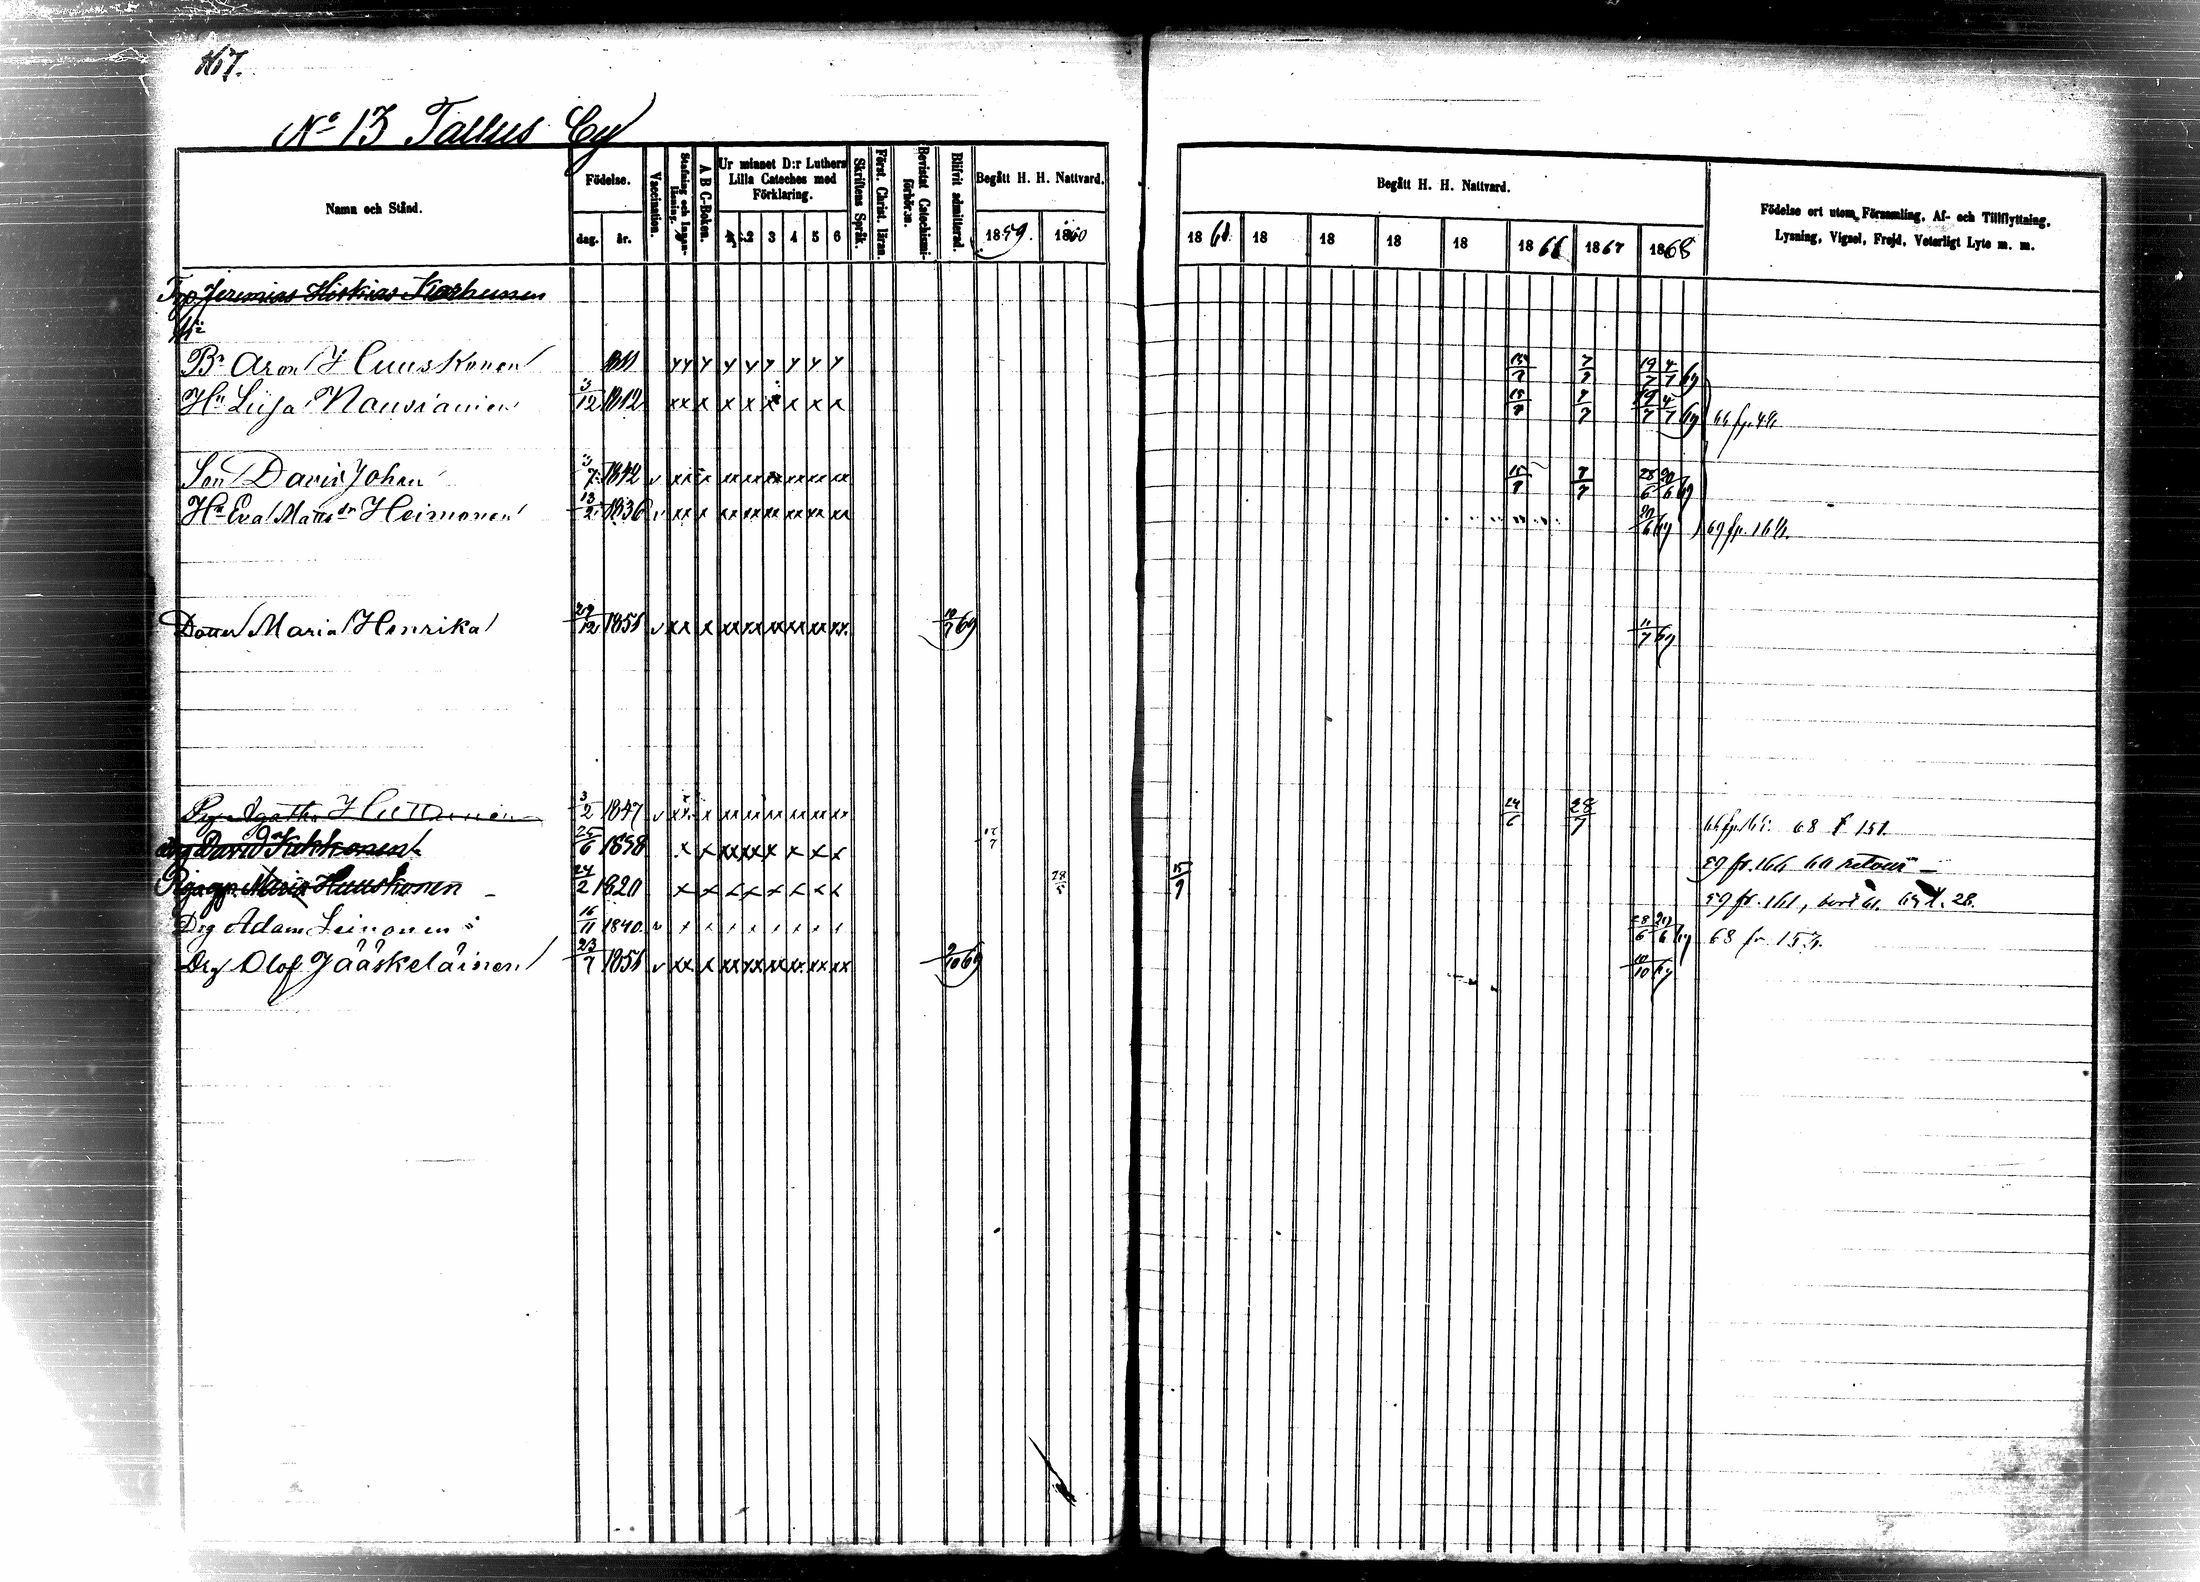 167.
No 13 Tallus By
Namn och Stånd.
Födelse.
dag.
år.
Vaccination.
Stafning och Innanläsning.
A B C-Boken.
Ur minnet D:r Luthers Lilla Cateches med Förklaring.
1 2 3 4 5 6
Skriftens Språk.
Först. Christ. läran.
Bevistat Catechismiförhören.
Blifvit admitterad.
Begått H. H. Nattvard.
1859. 1860
Begått H. H. Nattvard.
1861 18 18 18 18 1866 1867 1868
Födelse ort utom Församling, Af- och Tillflyttning, Lysning, Vigsel, Frejd, Veterligt Lyte m. m.
Jeremias Hiskias Korhunen
Br Aron Huuskonen 15/7 7/7 19/7 4/7 69
Hu Lisa Nausiainen 3/12 1812 x x x x x x x x x 15/7 7/7 19/7 4/7 69
Son David Johan 3/7 1842 v xx x xx xx xx xx xx xx 15/7 7/7 28/6 20/6 69
Hu Eva Mattsdr Heimonen 13/2 1836 v xx x xx xx xx xx xx xx 20/6 69 69 fr. 161.
Dotter Maria Henrika 29/12 1851 v xx x xx xx xx xx xx xx 10/7 69 11/7 69
Pig Agatha Huttunen 3/2 1847 v xx x xx xx xx xx xx xx 24/6 28/7 68 t 151
Drg David Kukkonen 25/6 1838 x x xx xx x x x x 17/7 59 fr. 166 60 retour
Maria Huuskonen 24/2 1820 x x x x x x x x 28/5 15/9 59 fr. 161, bort 61. 69 t. 28.
Drg Adam Leinonen 16/11 1840 v x x x x x x x x 28/6 20/6 69 68 fr. 157.
Drg Olof Jääskeläinen 23/7 1851 v xx x xx xx xx xx xx xx 9/10 69 10/10 69